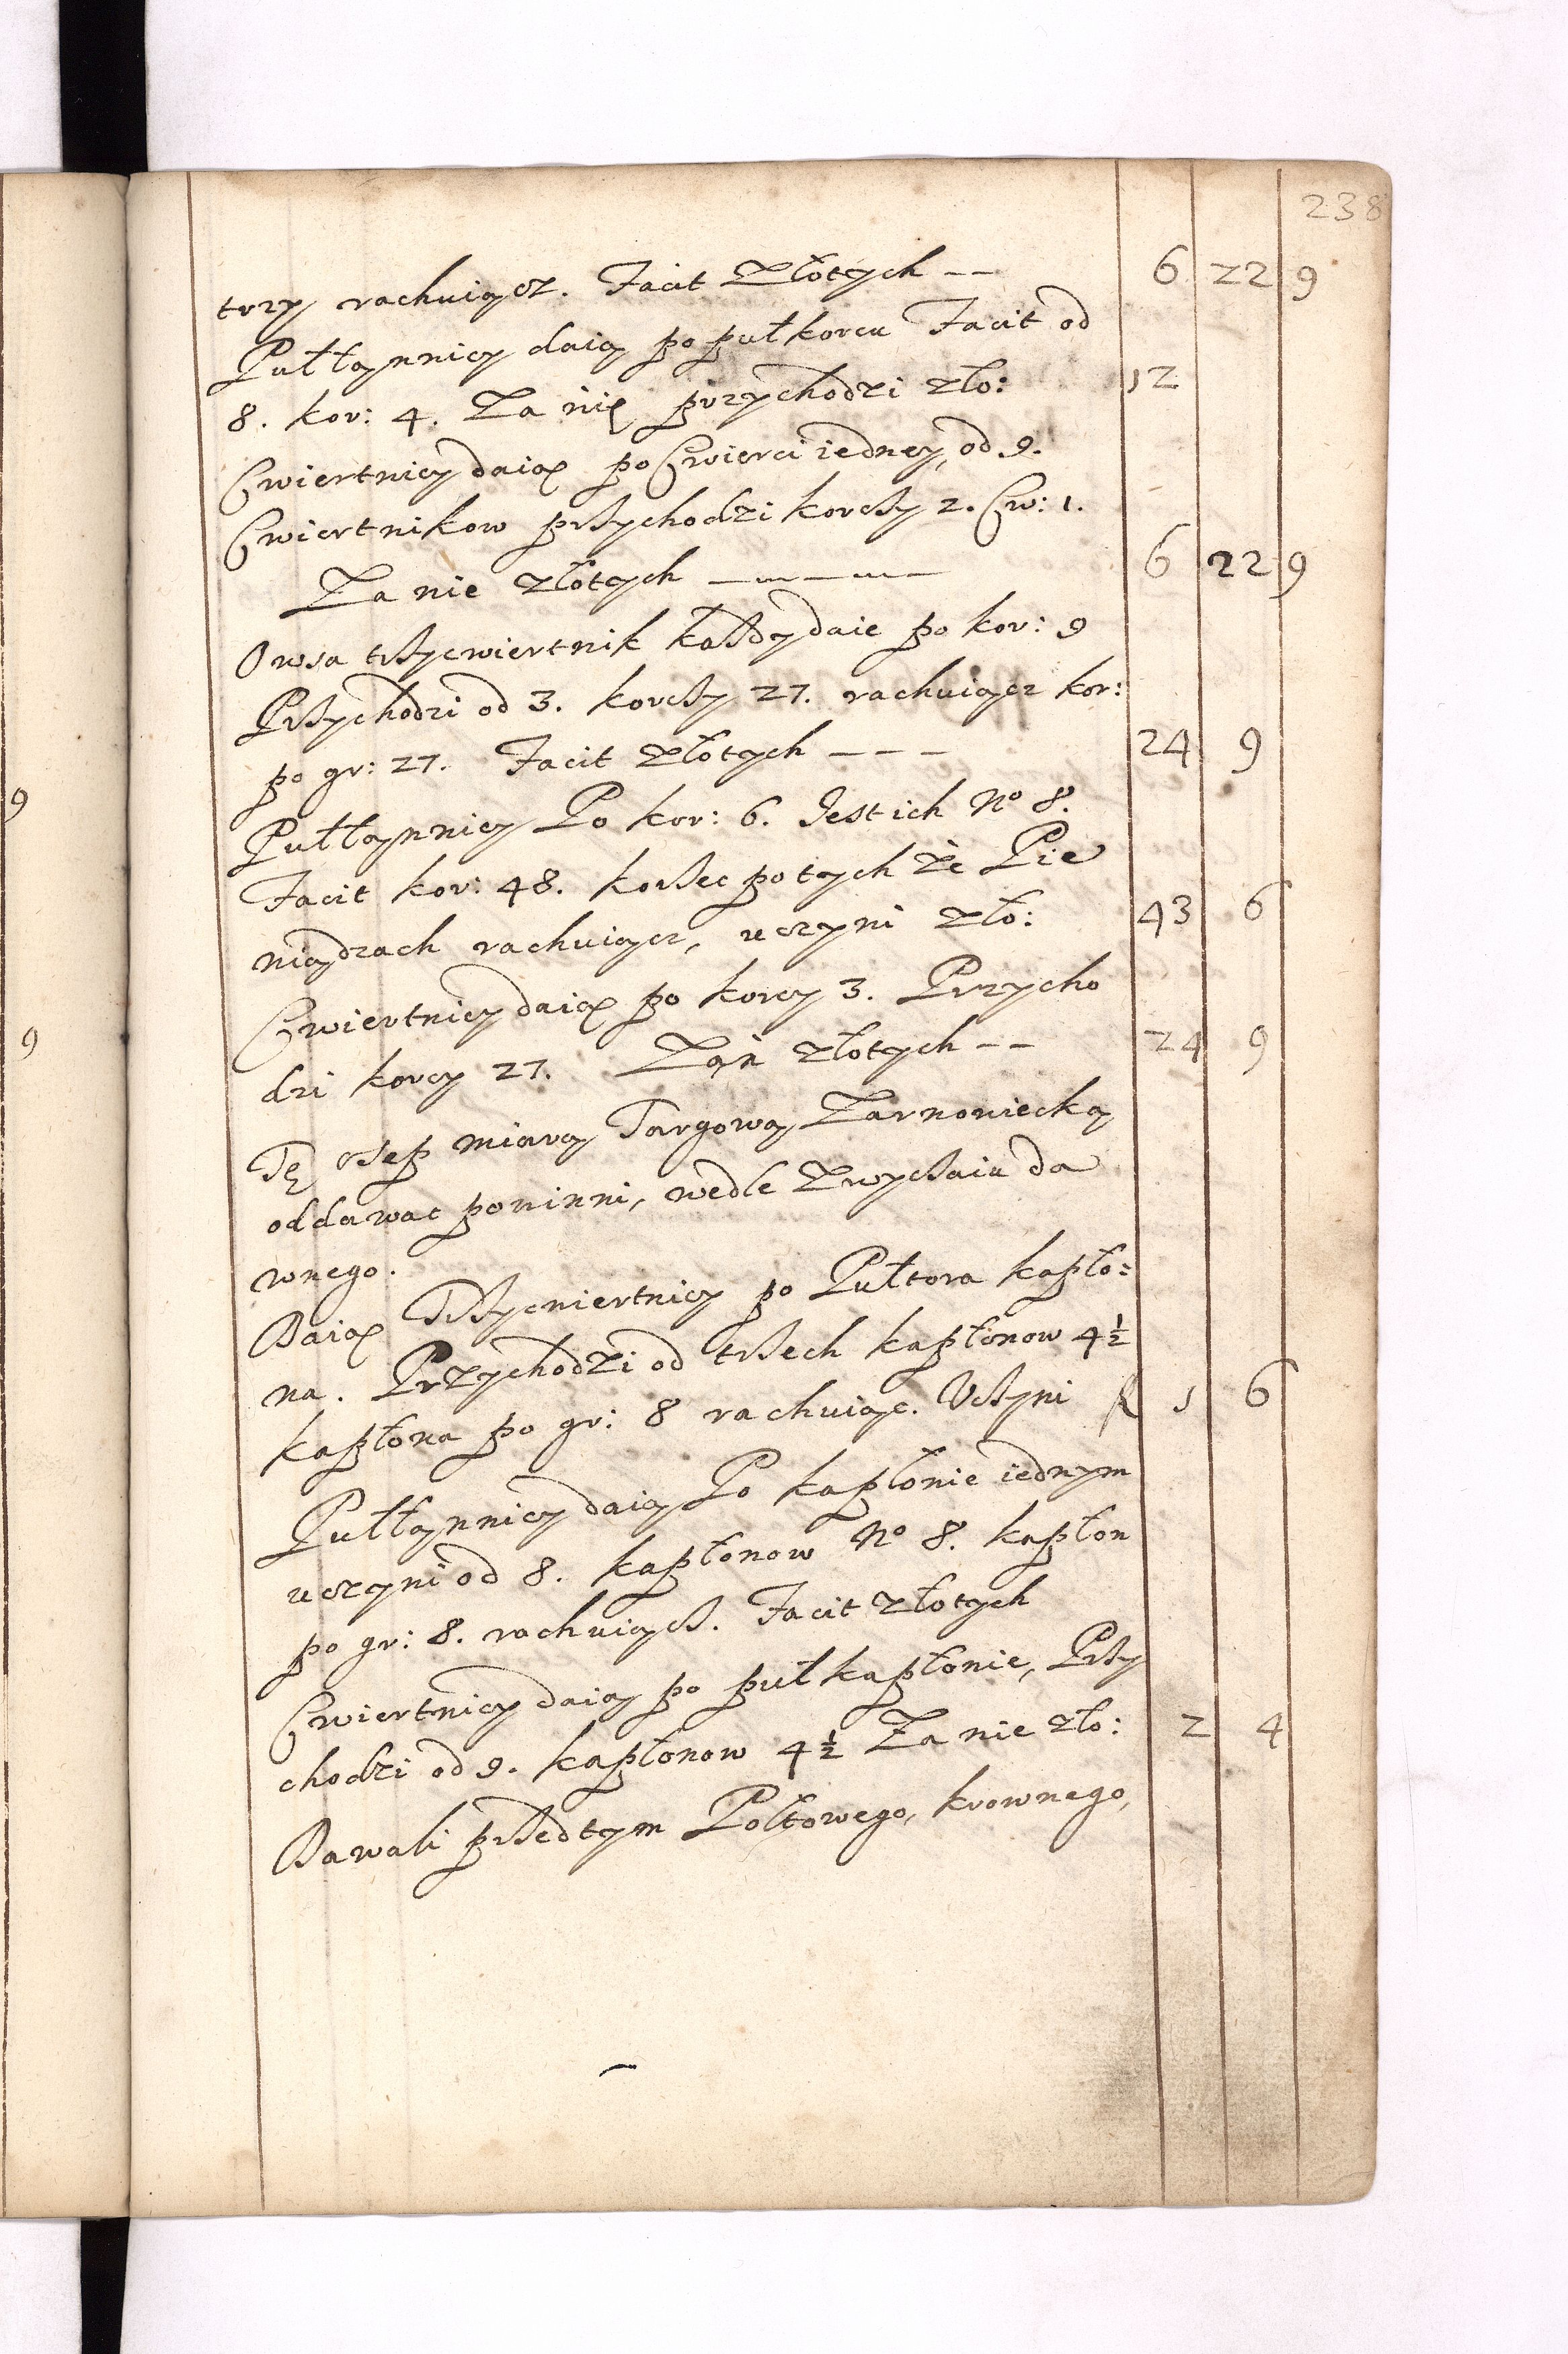 238
trzy rachuiącz. Facit Złotych -- 6 22 9
Pułłannicy daią po pułkorcu Facit od
8. kor: 4. Za nię przychodzi zło: 12
Cwiertnicy daią po Cwierci iedney, od 9.
Cwiertnikow przychodzi korczy 2. Cw: 1.
Za nie złotych ----- 6 22 9
Owsa trzycwiertnik każdy daie po kor: 9
Przychodzi od 3. korczy 27. rachuiącz kor:
po gr: 27. Facit złotych --- 24 9
Pułłannicy Po kor: 6. Jest ich No 8.
Facit kor: 48. korzec po tych że Pie
niądzach rachuiącz, uczyni zło: 43 6
Cwiertnicy daią po korcy 3. Przycho
dzi korcy 27. Zań złotych -- 24 9
Tę osep miarą Targową Zarnowiecką
oddawac powinni, wedle Zwyczaiu da
wnego.
Daią Trzycwiertnicy po Pułtora kapło:
na. Przychodzi od trzech kapłonow 4½
kapłona po gr: 8 rachuiąc. Uczyni f 1 6
Pułłannicy daią Po kapłonie iednym
uczyni od 8. kapłonow No 8. kapłon
po gr: 8. rachuiącz. Facit złotych
Cwiertnicy daią po puł kapłonie, Przy
chodzi od 9. kapłonow 4½ Za nie zło: 2 4
Dawali przedtym Połtowego, krownego,
9
9